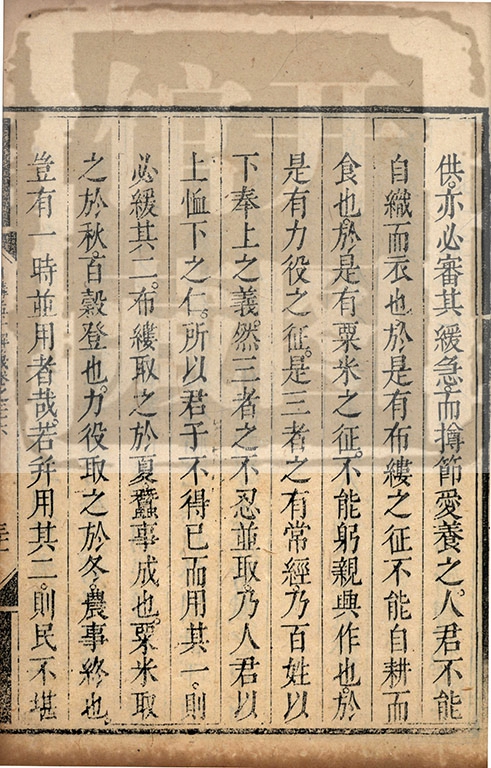 供亦必審其緩急而撙節愛養之人君不能
自織而衣也於是有布縷之征不能自耕而
食也於是有粟米之征不能躬親興作也於
是有力役之征是三者之有常經乃百姓以
下奉上之義然三者之不忍並取乃人君以
上恤下之仁所以君子不得已而用其一則
必緩其二布縷取之於夏蠶事成也粟米取
之於秋百穀登也力役取之於冬農事終也
豈有一時並用者哉若并用其二則民不堪